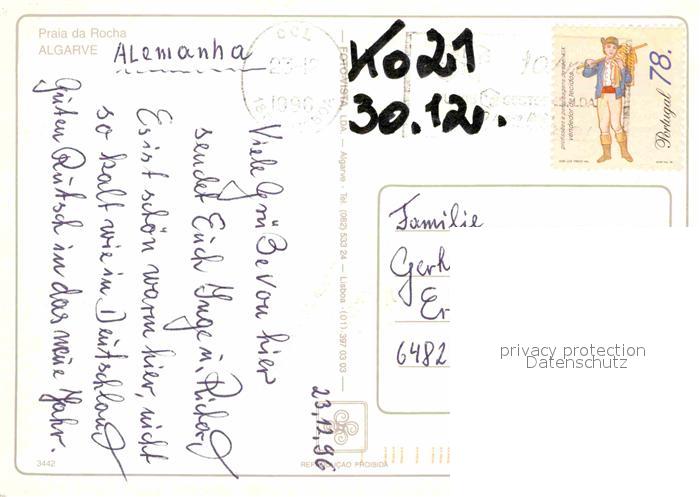 Praia da Rocha
ALGARVE
Alemanha
23-12
1996
Ko21
30.12.
78.
Portugal
vendedor de tecidos
Viele Grüße von hier
sendet Euch Inge u. Richard
Es ist schön warm hier, nicht
so kalt wie in Deutschland
Guten Rutsch in das neue Jahr.
23.12.96
FOTOVISTA, LDA. — Algarve - Tel. (082) 533 24 — Lisboa - (01) 397 03 03
Familie
Gerh
Er
6482
privacy protection
Datenschutz
3442
REPRODUÇÃO PROIBIDA